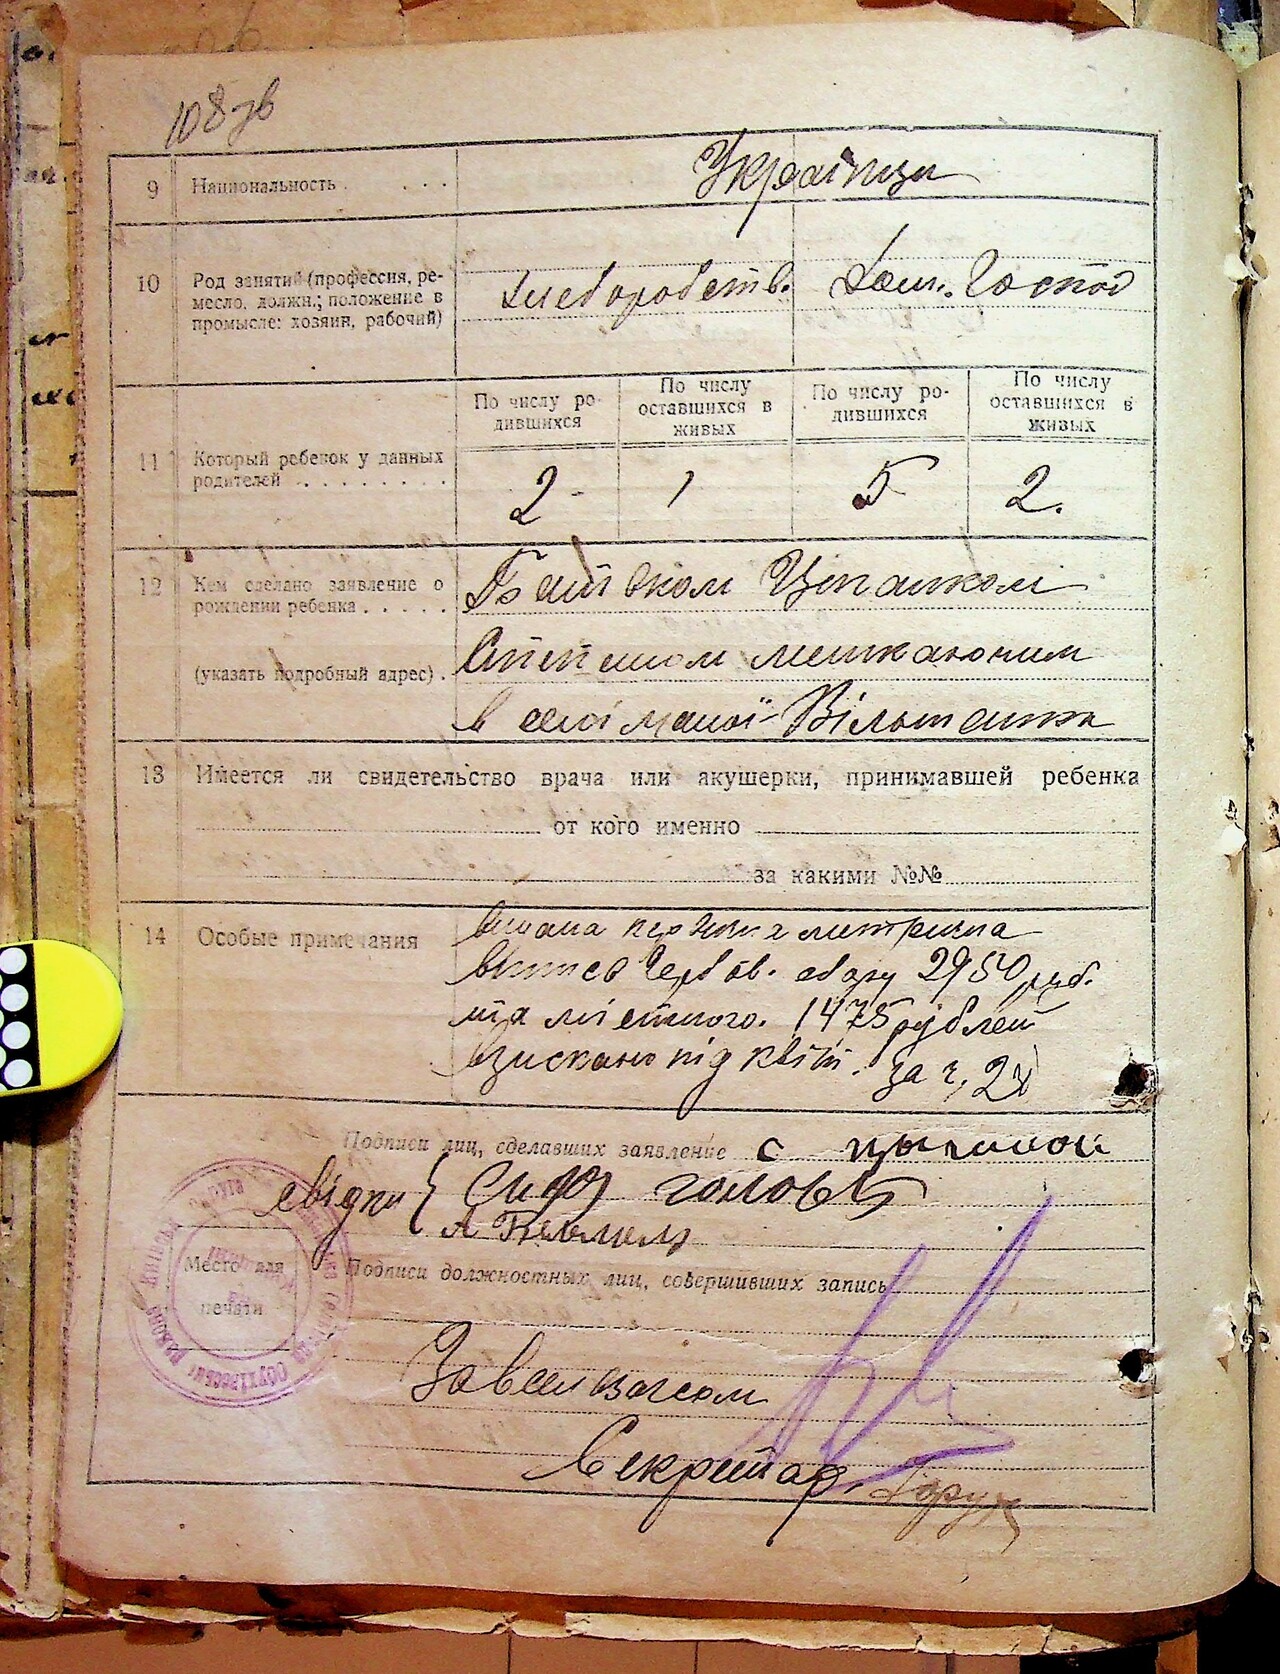 108 зв
9 Национальность . . . . Українци
10 Род занятий (профессия, ре-
месло, должн.; положение в
промысле: хозяин, рабочий)
хлеборобств. Дом. Господ
По числу ро-
дившихся
По числу
оставшихся в
живых
По числу ро-
дившихся
По числу
оставшихся в
живых
11 Который ребенок у данных
родителей . . . . . . . .
2 1 5 2.
12 Кем сделано заявление о
рождении ребенка . . . . .
Батьком
(указать подробный адрес) .
мешкаючим
в селі малої Вільшанки
13 Имеется ли свидетельство врача или акушерки, принимавшей ребенка
от кого именно
за какими №№
14 Особые примечания
метрична
збору 2950 руб.
та містного. 1475 рублей
взискано під квіт. за ч.
Подписи лиц, сделавших заявление с
свідки { Сидор
А
Место для
печати
Подписи должностных лиц, совершивших запись
Завем загсом
Секретар.